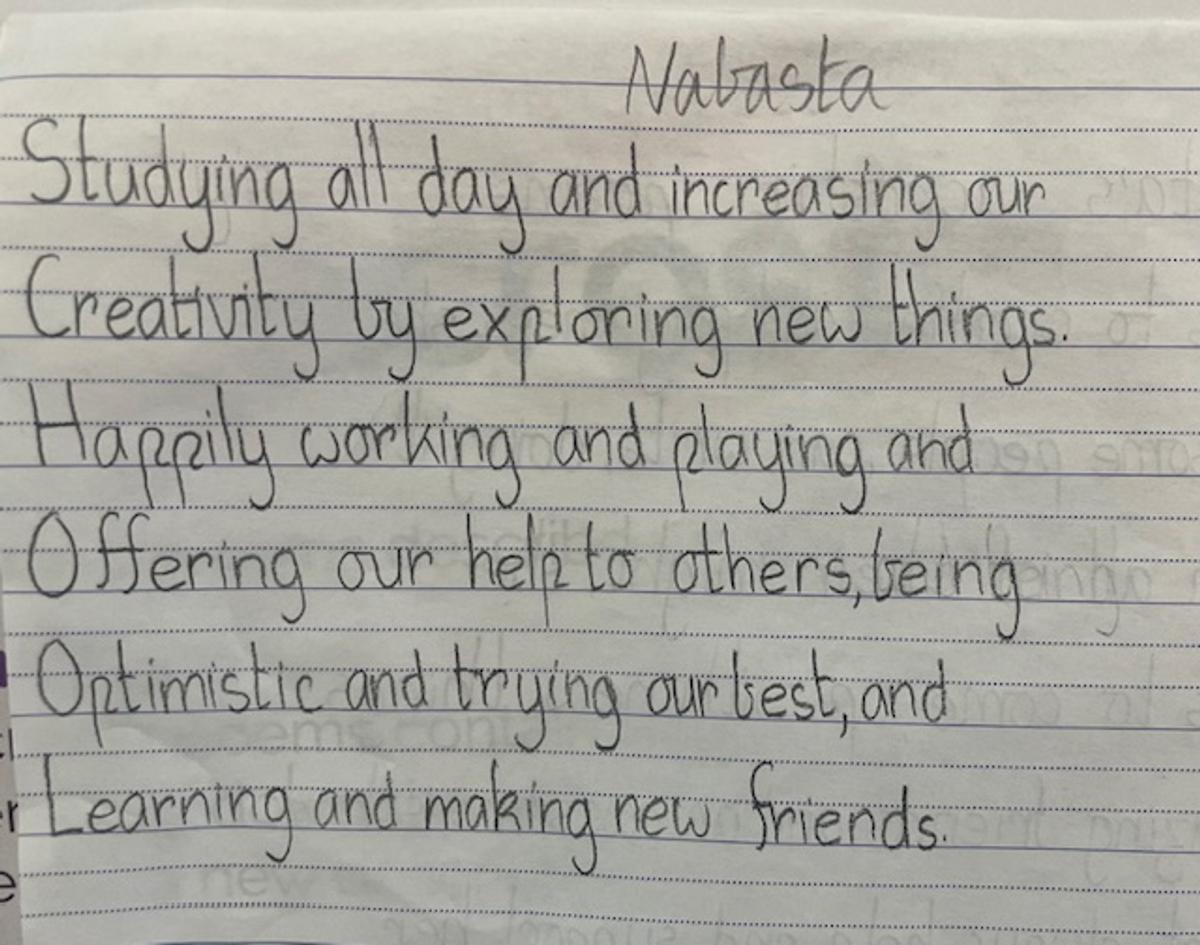 Nabasta
Studying all day and increasing our
Creativity by exploring new things.
Happily working and playing and
Offering our help to others, being
Optimistic and trying our best, and
Learning and making new friends.